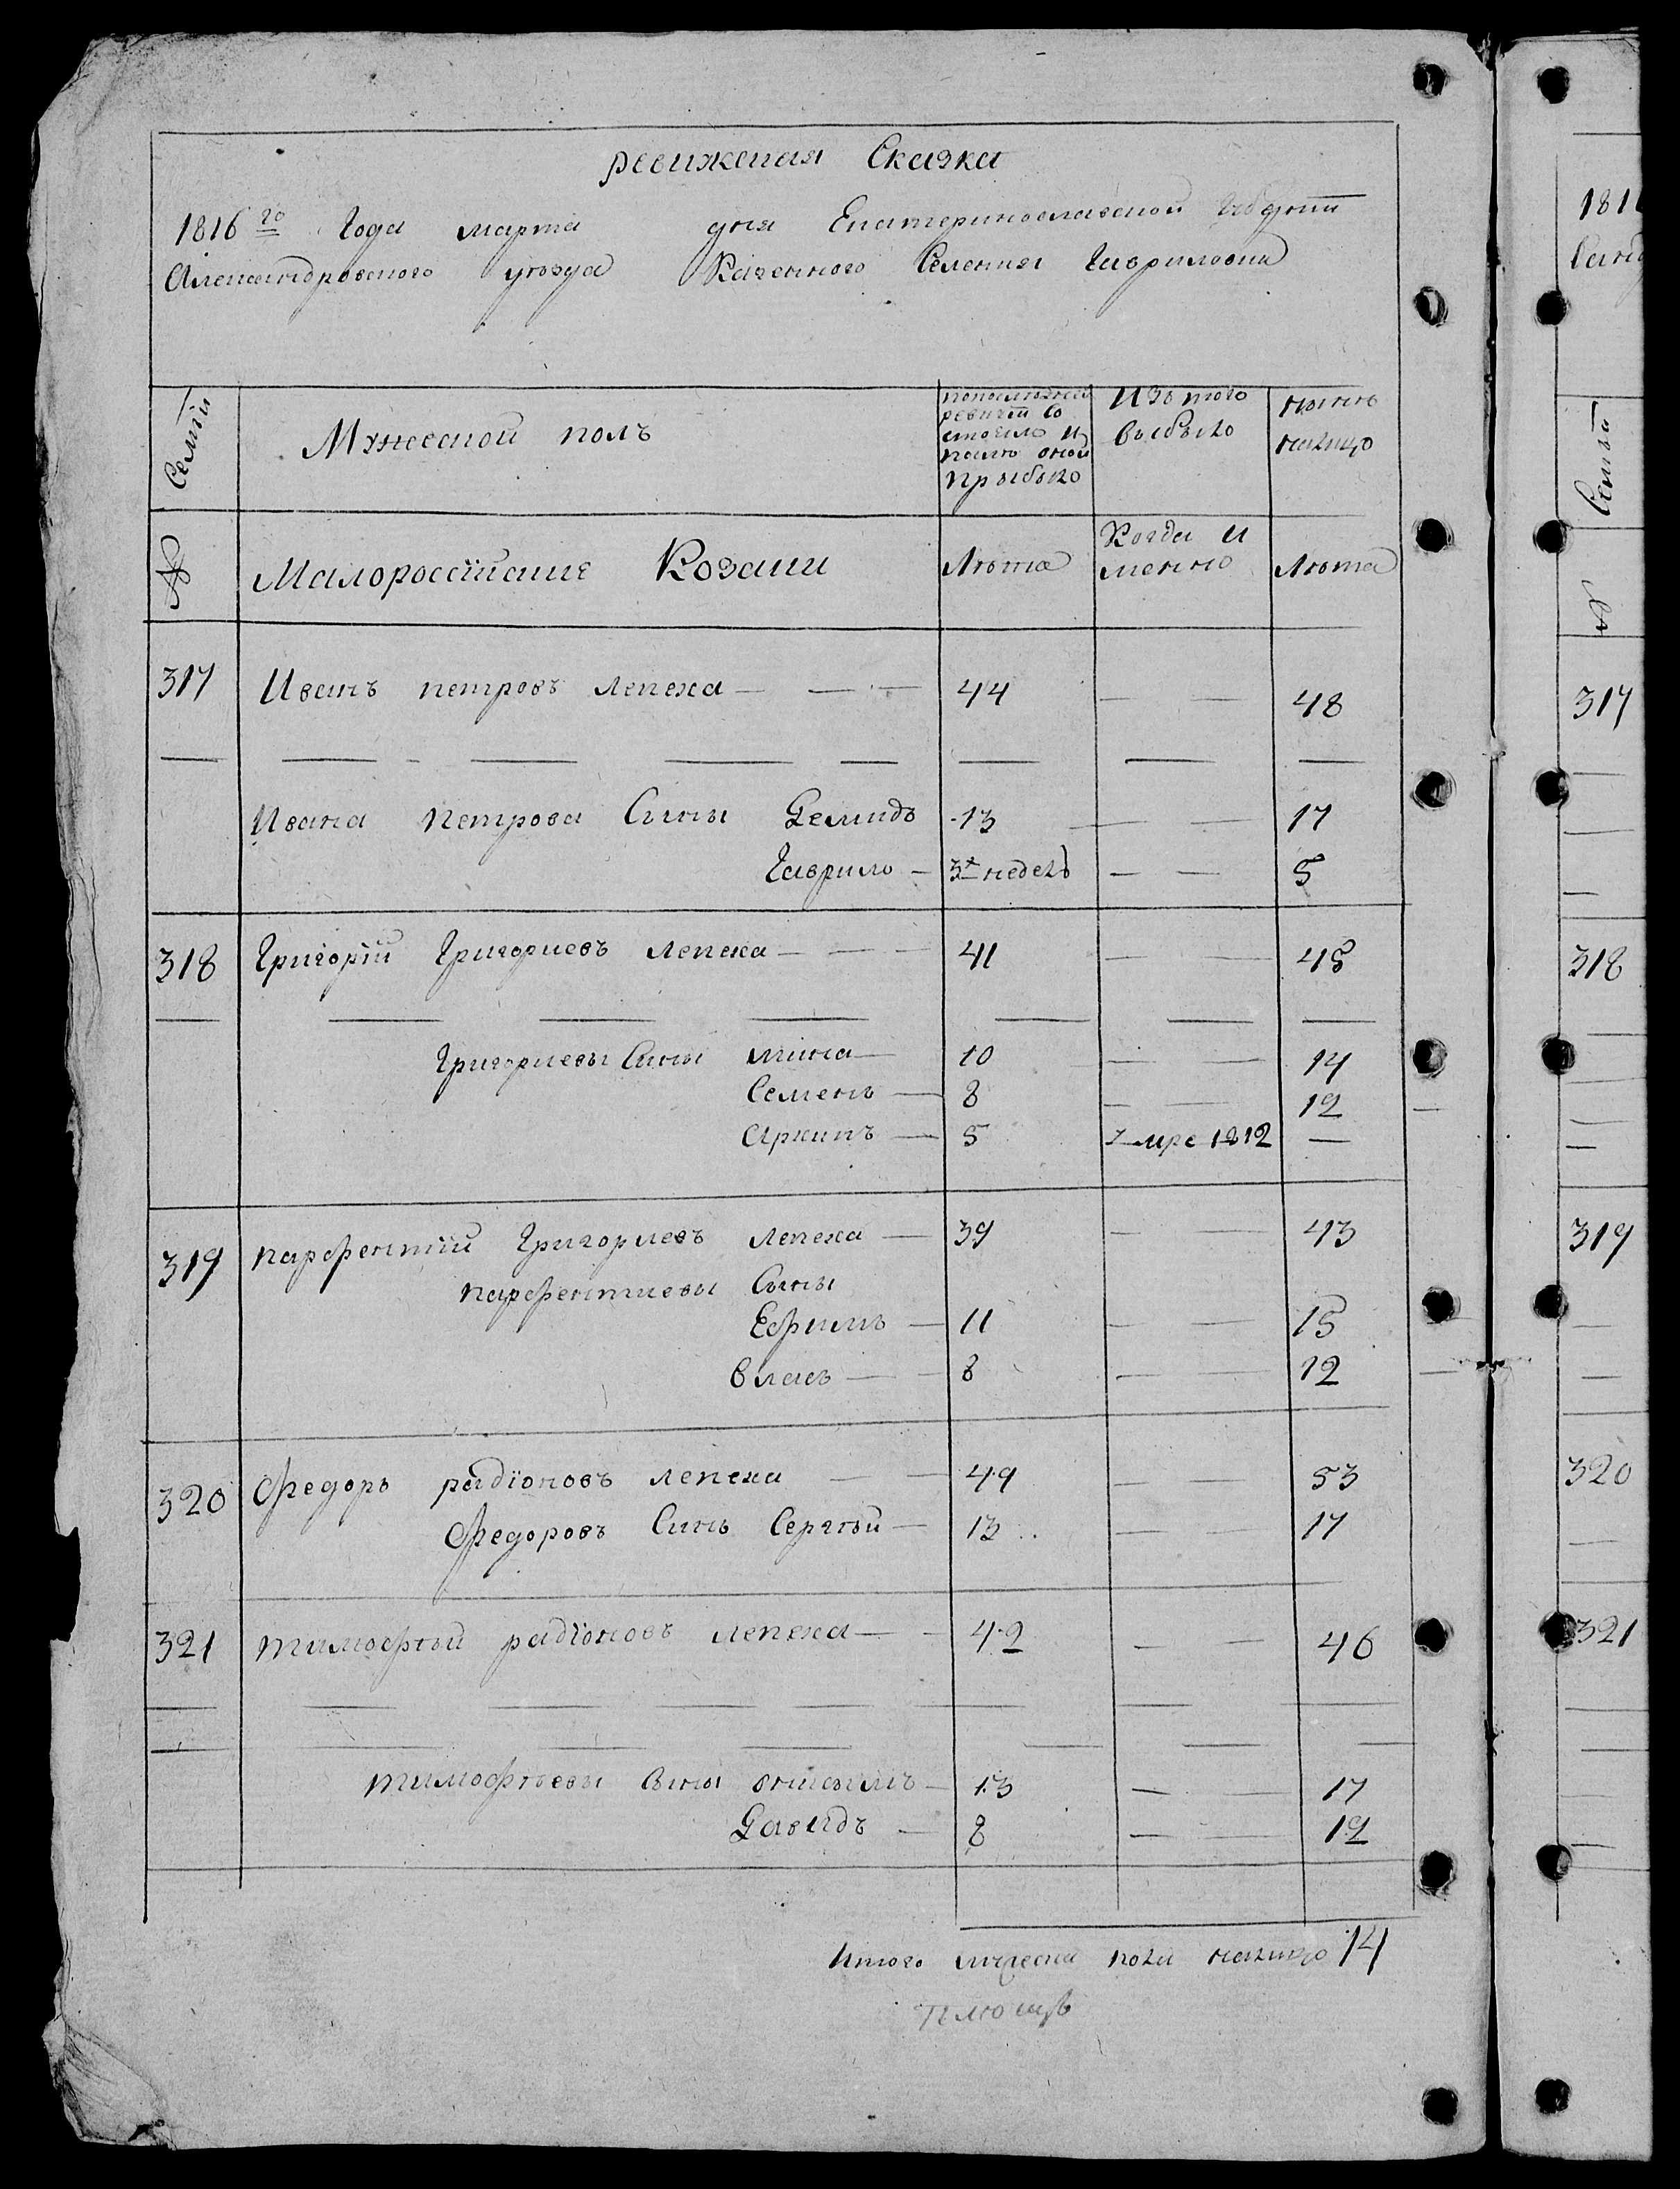 ревижская Сказка
1816го Года марта дня Екатеринославской Губернии
Александровского уезда Казенного Селения Гавриловки
Семьи
Мужеской полъ
попоследней ревизіи состояло и после оной прыбыло
Изъ того выбыло
ныне налицо
№
Малороссійские Козаки
Лѣта
Когда именно
Лѣта
317 Иванъ петровъ лепеха 44 48
Ивана петрова Сыны Демидъ 13 17
Гаврило 3х неделъ 5
318 Григорій Григориевъ лепеха 41 45
Григориевы Сыны мина 10 14
Семенъ 8 12
Архипъ 5 умре 1812
319 парфентий Григориевъ лепеха 39 43
парфентиевы Сыны
Ефримъ 11 15
власъ 8 12
320 Федоръ радіоновъ лепеха 49 53
Федоровъ Синъ Сергѣй 13 17
321 тимофѣй радіоновъ лепеха 42 46
тимофѣеви Сыны 13 17
Давидъ 8 12
Итого мужеска пола налицо 14
1816
Семьи
№
317
318
319
320
321